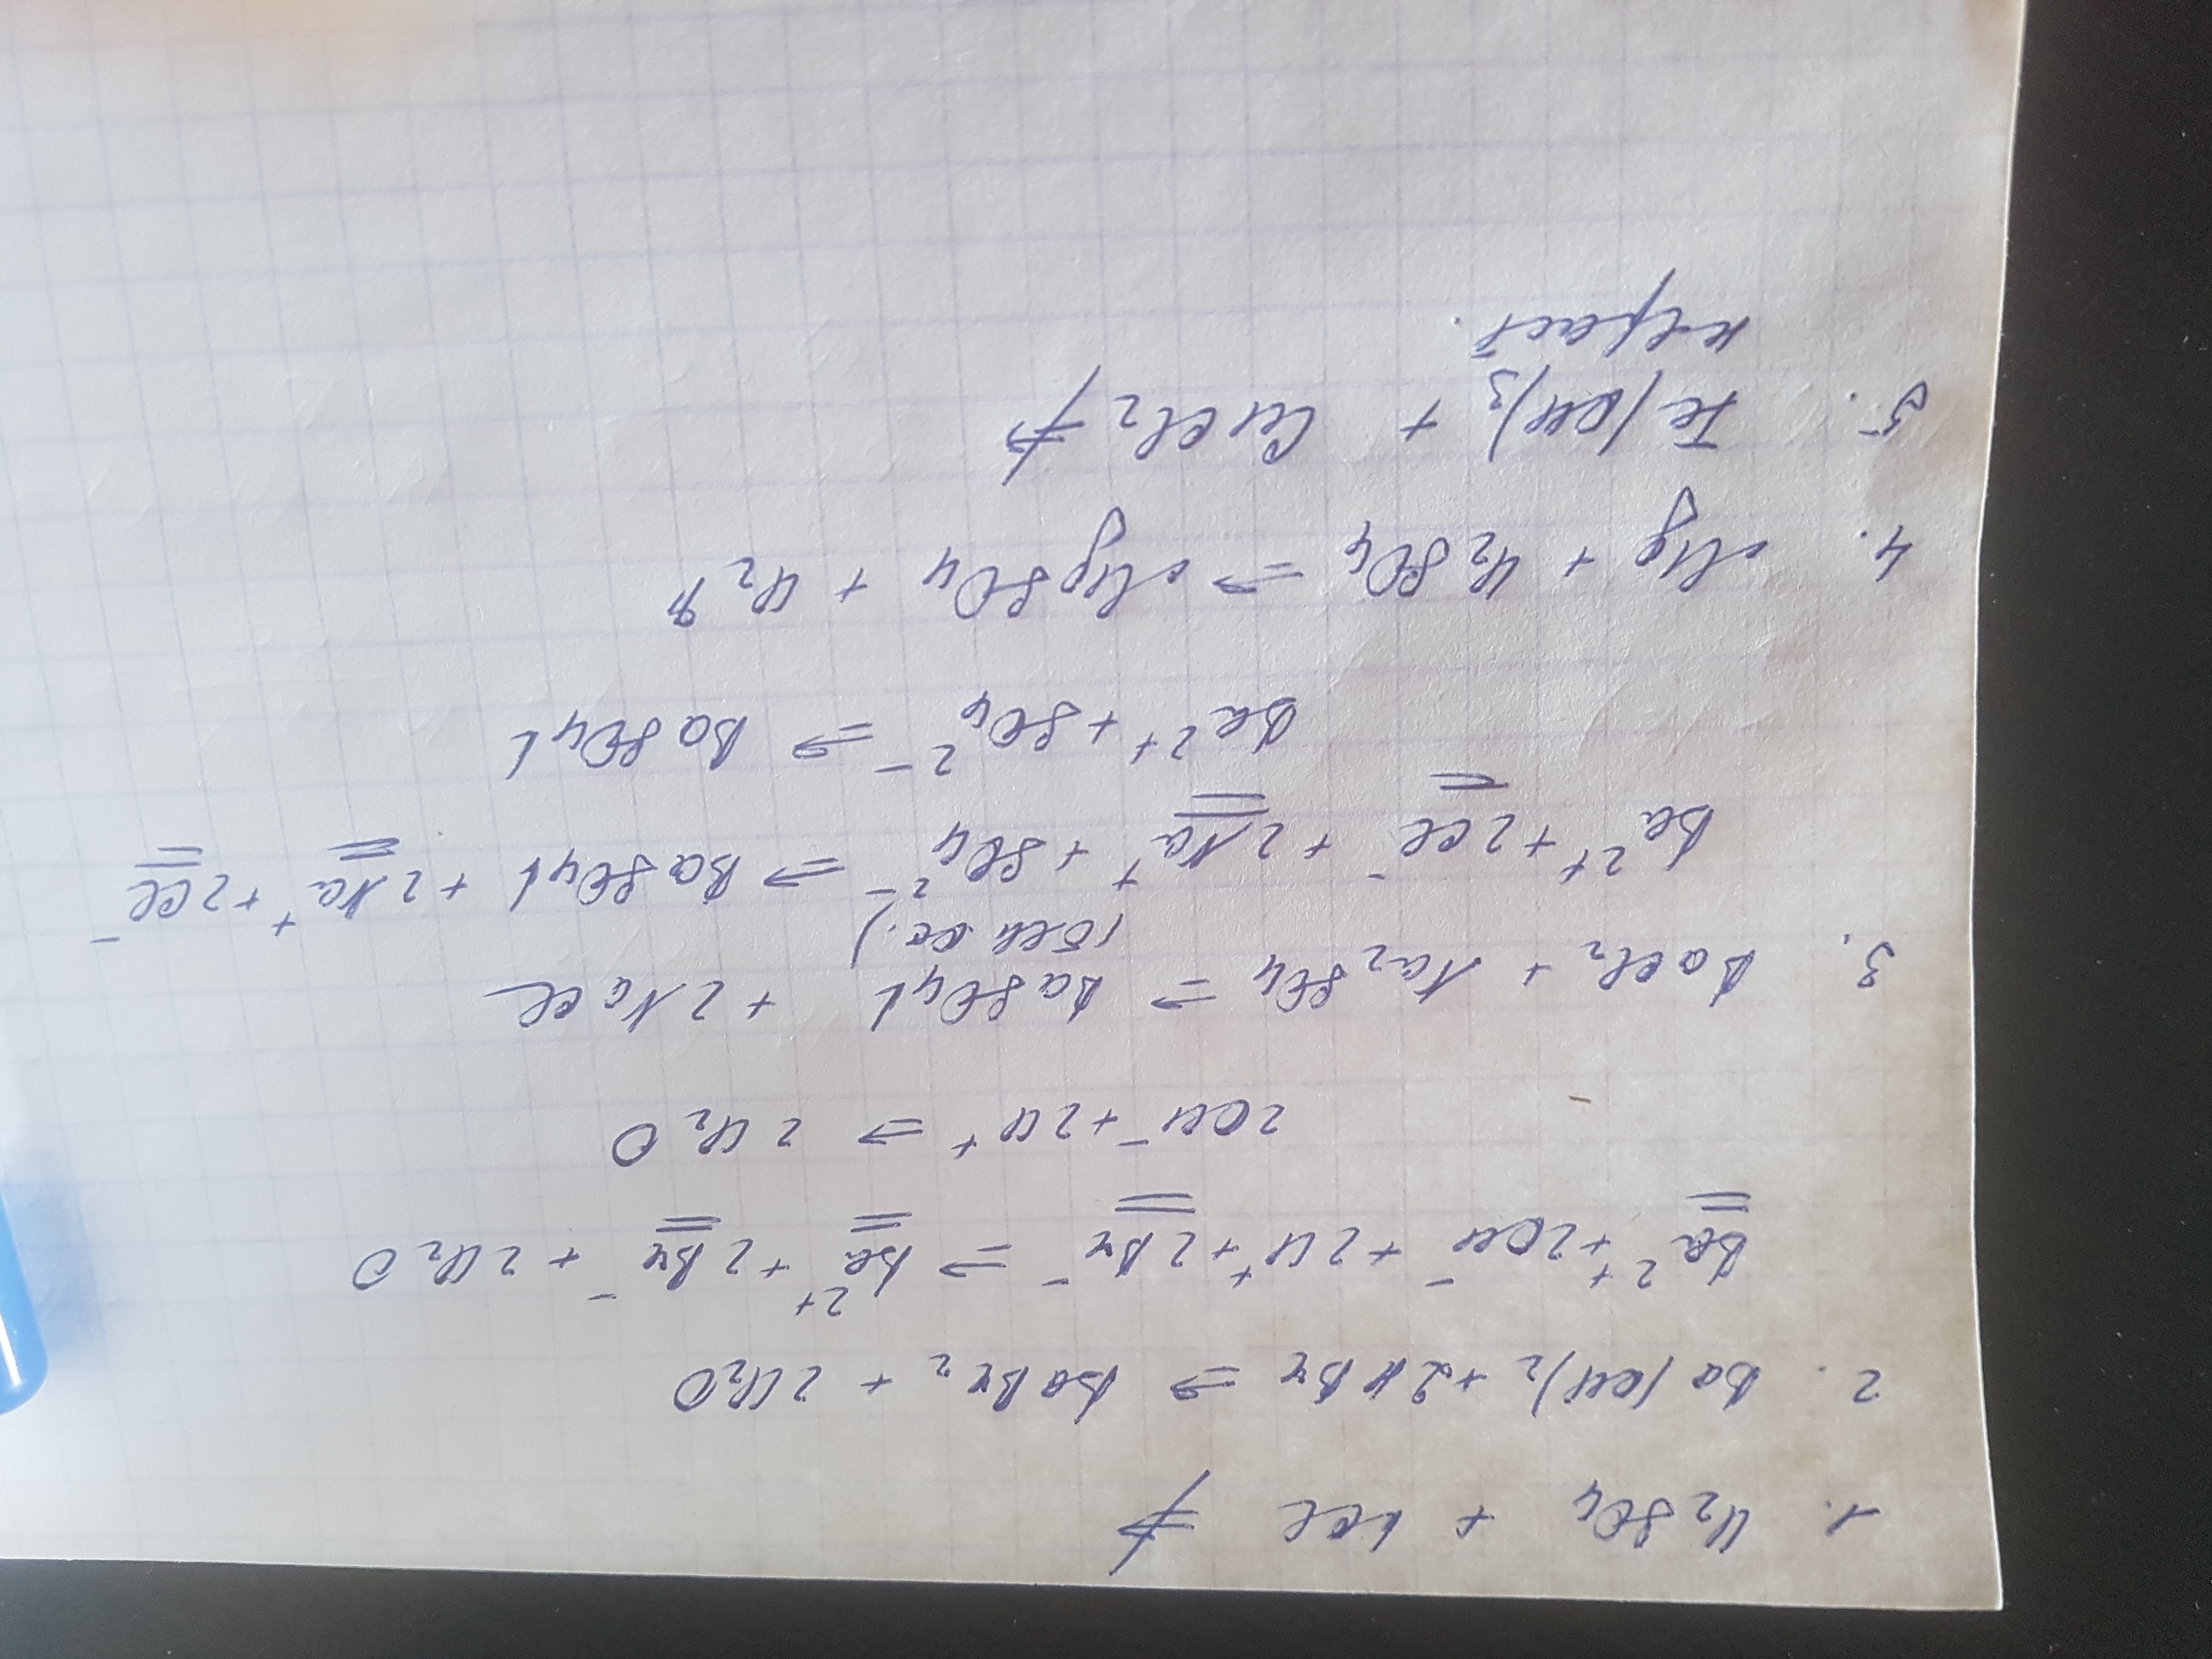 1. H₂SO₄ + KCl ⇏
2. Ba(OH)₂ + 2HBr ⇒ BaBr₂ + 2H₂O
Ba²⁺ + 2OH⁻ + 2H⁺ + 2Br⁻ ⇒ Ba²⁺ + 2Br⁻ + 2H₂O
2OH⁻ + 2H⁺ ⇒ 2H₂O
3. BaCl₂ + Na₂SO₄ ⇒ BaSO₄↓ + 2NaCl
(бел. ос.)
Ba²⁺ + 2Cl⁻ + 2Na⁺ + SO₄²⁻ ⇒ BaSO₄↓ + 2Na⁺ + 2Cl⁻
Ba²⁺ + SO₄²⁻ ⇒ BaSO₄↓
4. Mg + H₂SO₄ ⇒ MgSO₄ + H₂↑
5. Fe(OH)₃ + CuCl₂ ⇏
нераст.